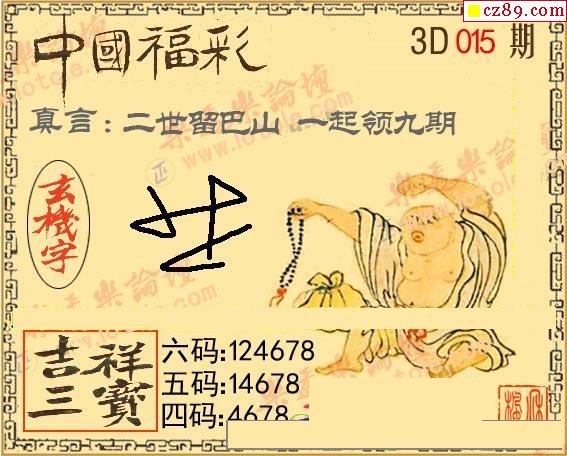 cz89.com
中國福彩
3D 015 期
真言：二世留巴山 一起领九期
玄機字
吉祥三寶
六码:124678
五码:14678
四码:4678